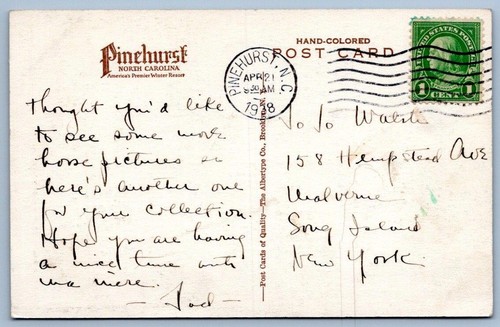 Pinehurst
NORTH CAROLINA
America's Premier Winter Resort
HAND-COLORED
POST CARD
PINEHURST, N.C.
APR 21
8 30 AM
1938
UNITED STATES POSTAGE
1 CENT 1
Thought you'd like
to see some more
horse pictures so
here's another one
for your collection.
Hope you are having
a nice time with
ma mere.
- Dad -
Post Cards of Quality.—The Albertype Co., Brooklyn, N.
Jo Jo Walsh
158 Hempstead Ave
Malverne
Long Island
New York.